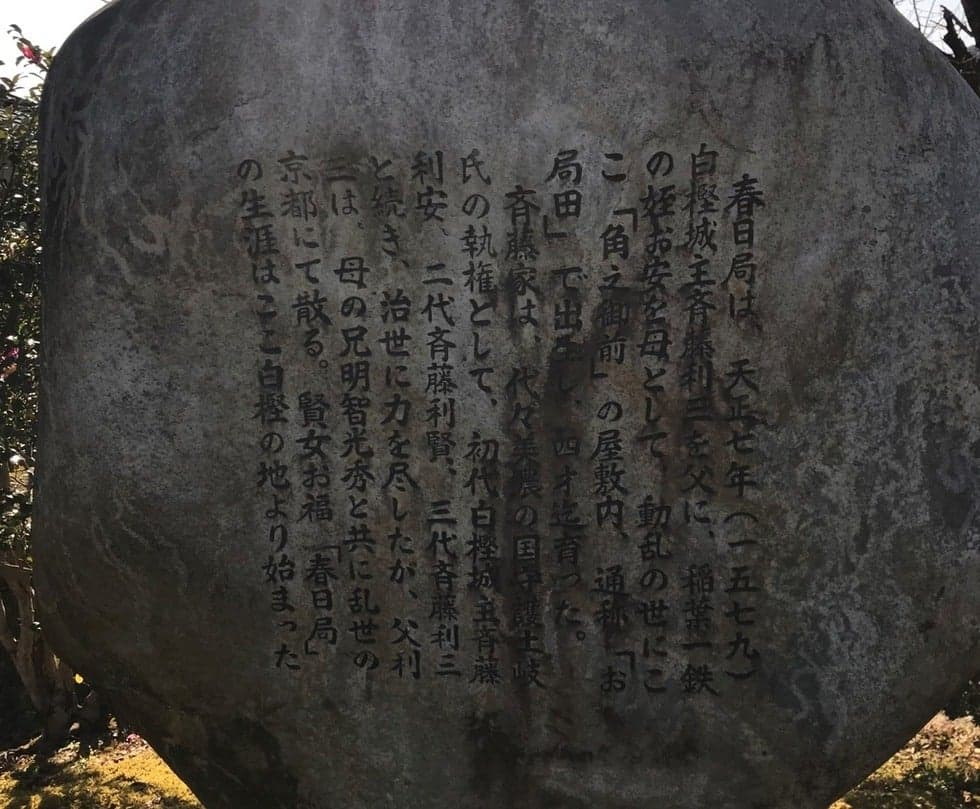 春日局は、天正七年（一五七九）
白樫城主斉藤利三を父に、稲葉一鉄
の姪お安を母として、動乱の世にこ
こ「角之御前」の屋敷内、通称「お
局田」で出生し、四才迄育った。
斉藤家は、代々美濃の国守護土岐
氏の執権として、初代白樫城主斉藤
利安、二代斉藤利賢、三代斉藤利三
と続き、治世に力を尽したが、父利
三は、母の兄明智光秀と共に乱世の
京都にて散る。賢女お福「春日局」
の生涯はここ白樫の地より始まった